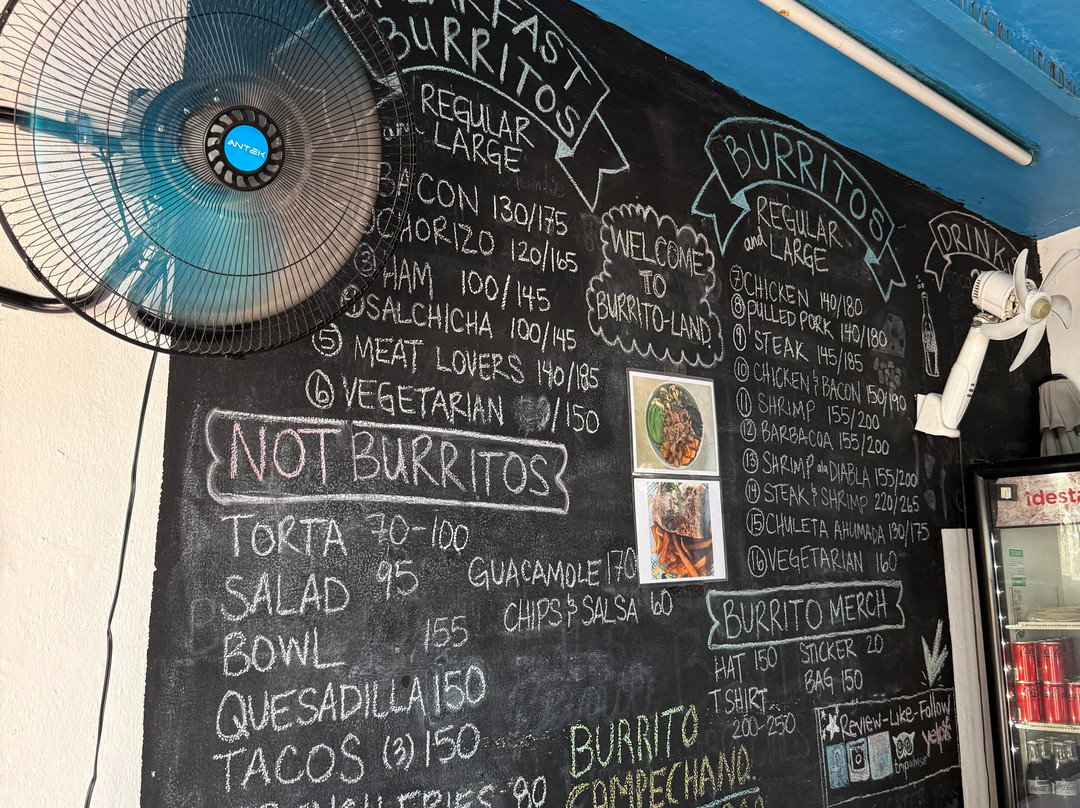 ANTEK
BURRITOS
REGULAR
LARGE
BACON 130/175
CHORIZO 120/165
③ HAM 100/145
SALCHICHA 100/145
⑤ MEAT LOVERS 140/185
⑥ VEGETARIAN /150
NOT BURRITOS
TORTA 70-100
SALAD 95
BOWL 155
QUESADILLA 150
TACOS (3) 150
FRIES 90
GUACAMOLE 170
CHIPS & SALSA 60
WELCOME
TO
BURRITO-LAND
BURRITO
CAMPECHANO
BURRITOS
REGULAR
and LARGE
⑦ CHICKEN 140/180
⑧ PULLED PORK 140/180
⑨ STEAK 145/185
⑩ CHICKEN & BACON 150/190
⑪ SHRIMP 155/200
⑫ BARBACOA 155/200
⑬ SHRIMP ala DIABLA 155/200
⑭ STEAK & SHRIMP 220/265
⑮ CHULETA AHUMADA 130/175
⑯ VEGETARIAN 160
BURRITO MERCH
HAT 150 STICKER 20
T SHIRT BAG 150
200-250
Review-Like-Follow
tripadvisor yelp
DRINK